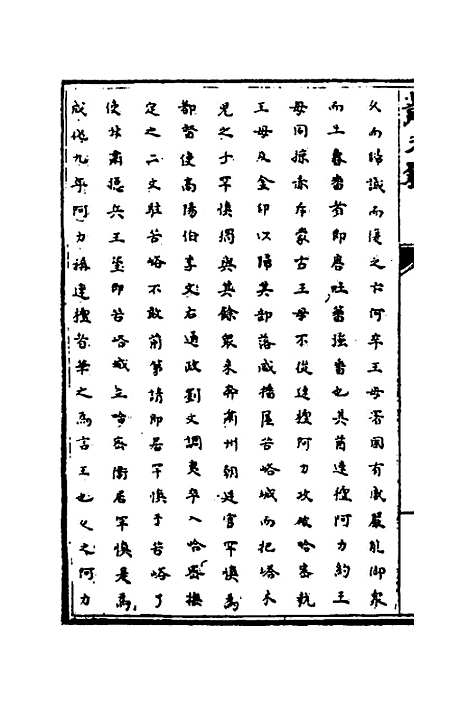 久而結誠而復之亡何卒王母署國有威嚴能御衆
而土魯番者即唐吐蕃強番也其酋速檀阿力約王
母同掠赤斤蒙古王母不從速檀阿力攻破哈密執
王母及金印以歸其部落咸播居苦峪城而把塔木
兒之子罕慎獨與其餘衆來奔肅州朝廷官罕慎爲
都督使高陽伯李文右通政劉文調夷卒入哈密撫
定之二文駐苦峪不敢前第請即居罕慎于苦峪了
使甘肅撫兵王璽即苦峪城立哈密衛居罕慎是爲
成化九年阿力稱速檀者華之爲言王也久之阿力